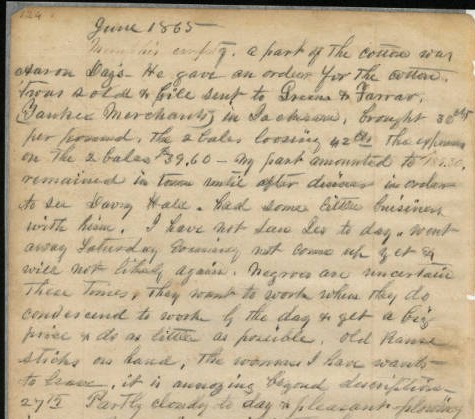 124
June 1865
a part of the cotton was
Aaron Days - He gave an order for the cotton.
I was sold & bill sent to Greene & Farrar,
(Yankee Merchants) in Jackson. brought 30 cts
per pound. the 2 bales loosing 42 lbs the expenses
on the 2 bales $39.60 - my part amounted to
remained in town until after dinner in order
to see Davy Hale. had some little buisiness
with him. I have not seen Les to day. went
away Saturday evening not come up yet &
will not likely again. Negroes are uncertain
these times, they want to work when they do
condescend to work by the day & get a big
price & do as little as possible. Old Nance
sticks on hand, the woman I have wants
to leave, it is annoying beyond description
27th Partly cloudy to day & pleasant plowing